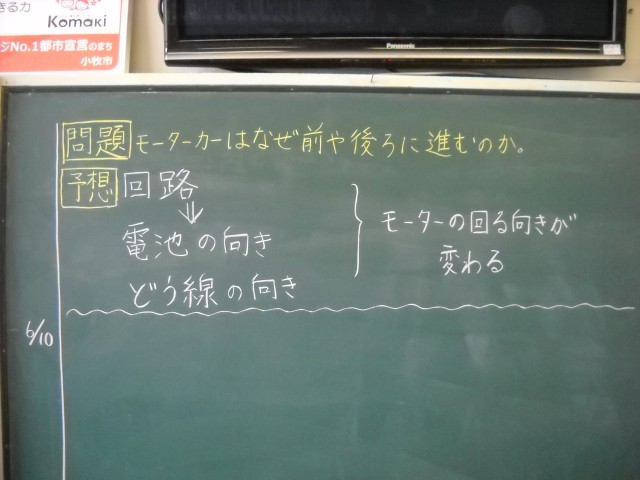 きる力
Komaki
ジNo.1都市宣言のまち
小牧市
Panasonic
問題 モーターカーはなぜ前や後ろに進むのか。
予想 回路
⇓
電池の向き
どう線の向き
モーターの回る向きが
変わる
6/10